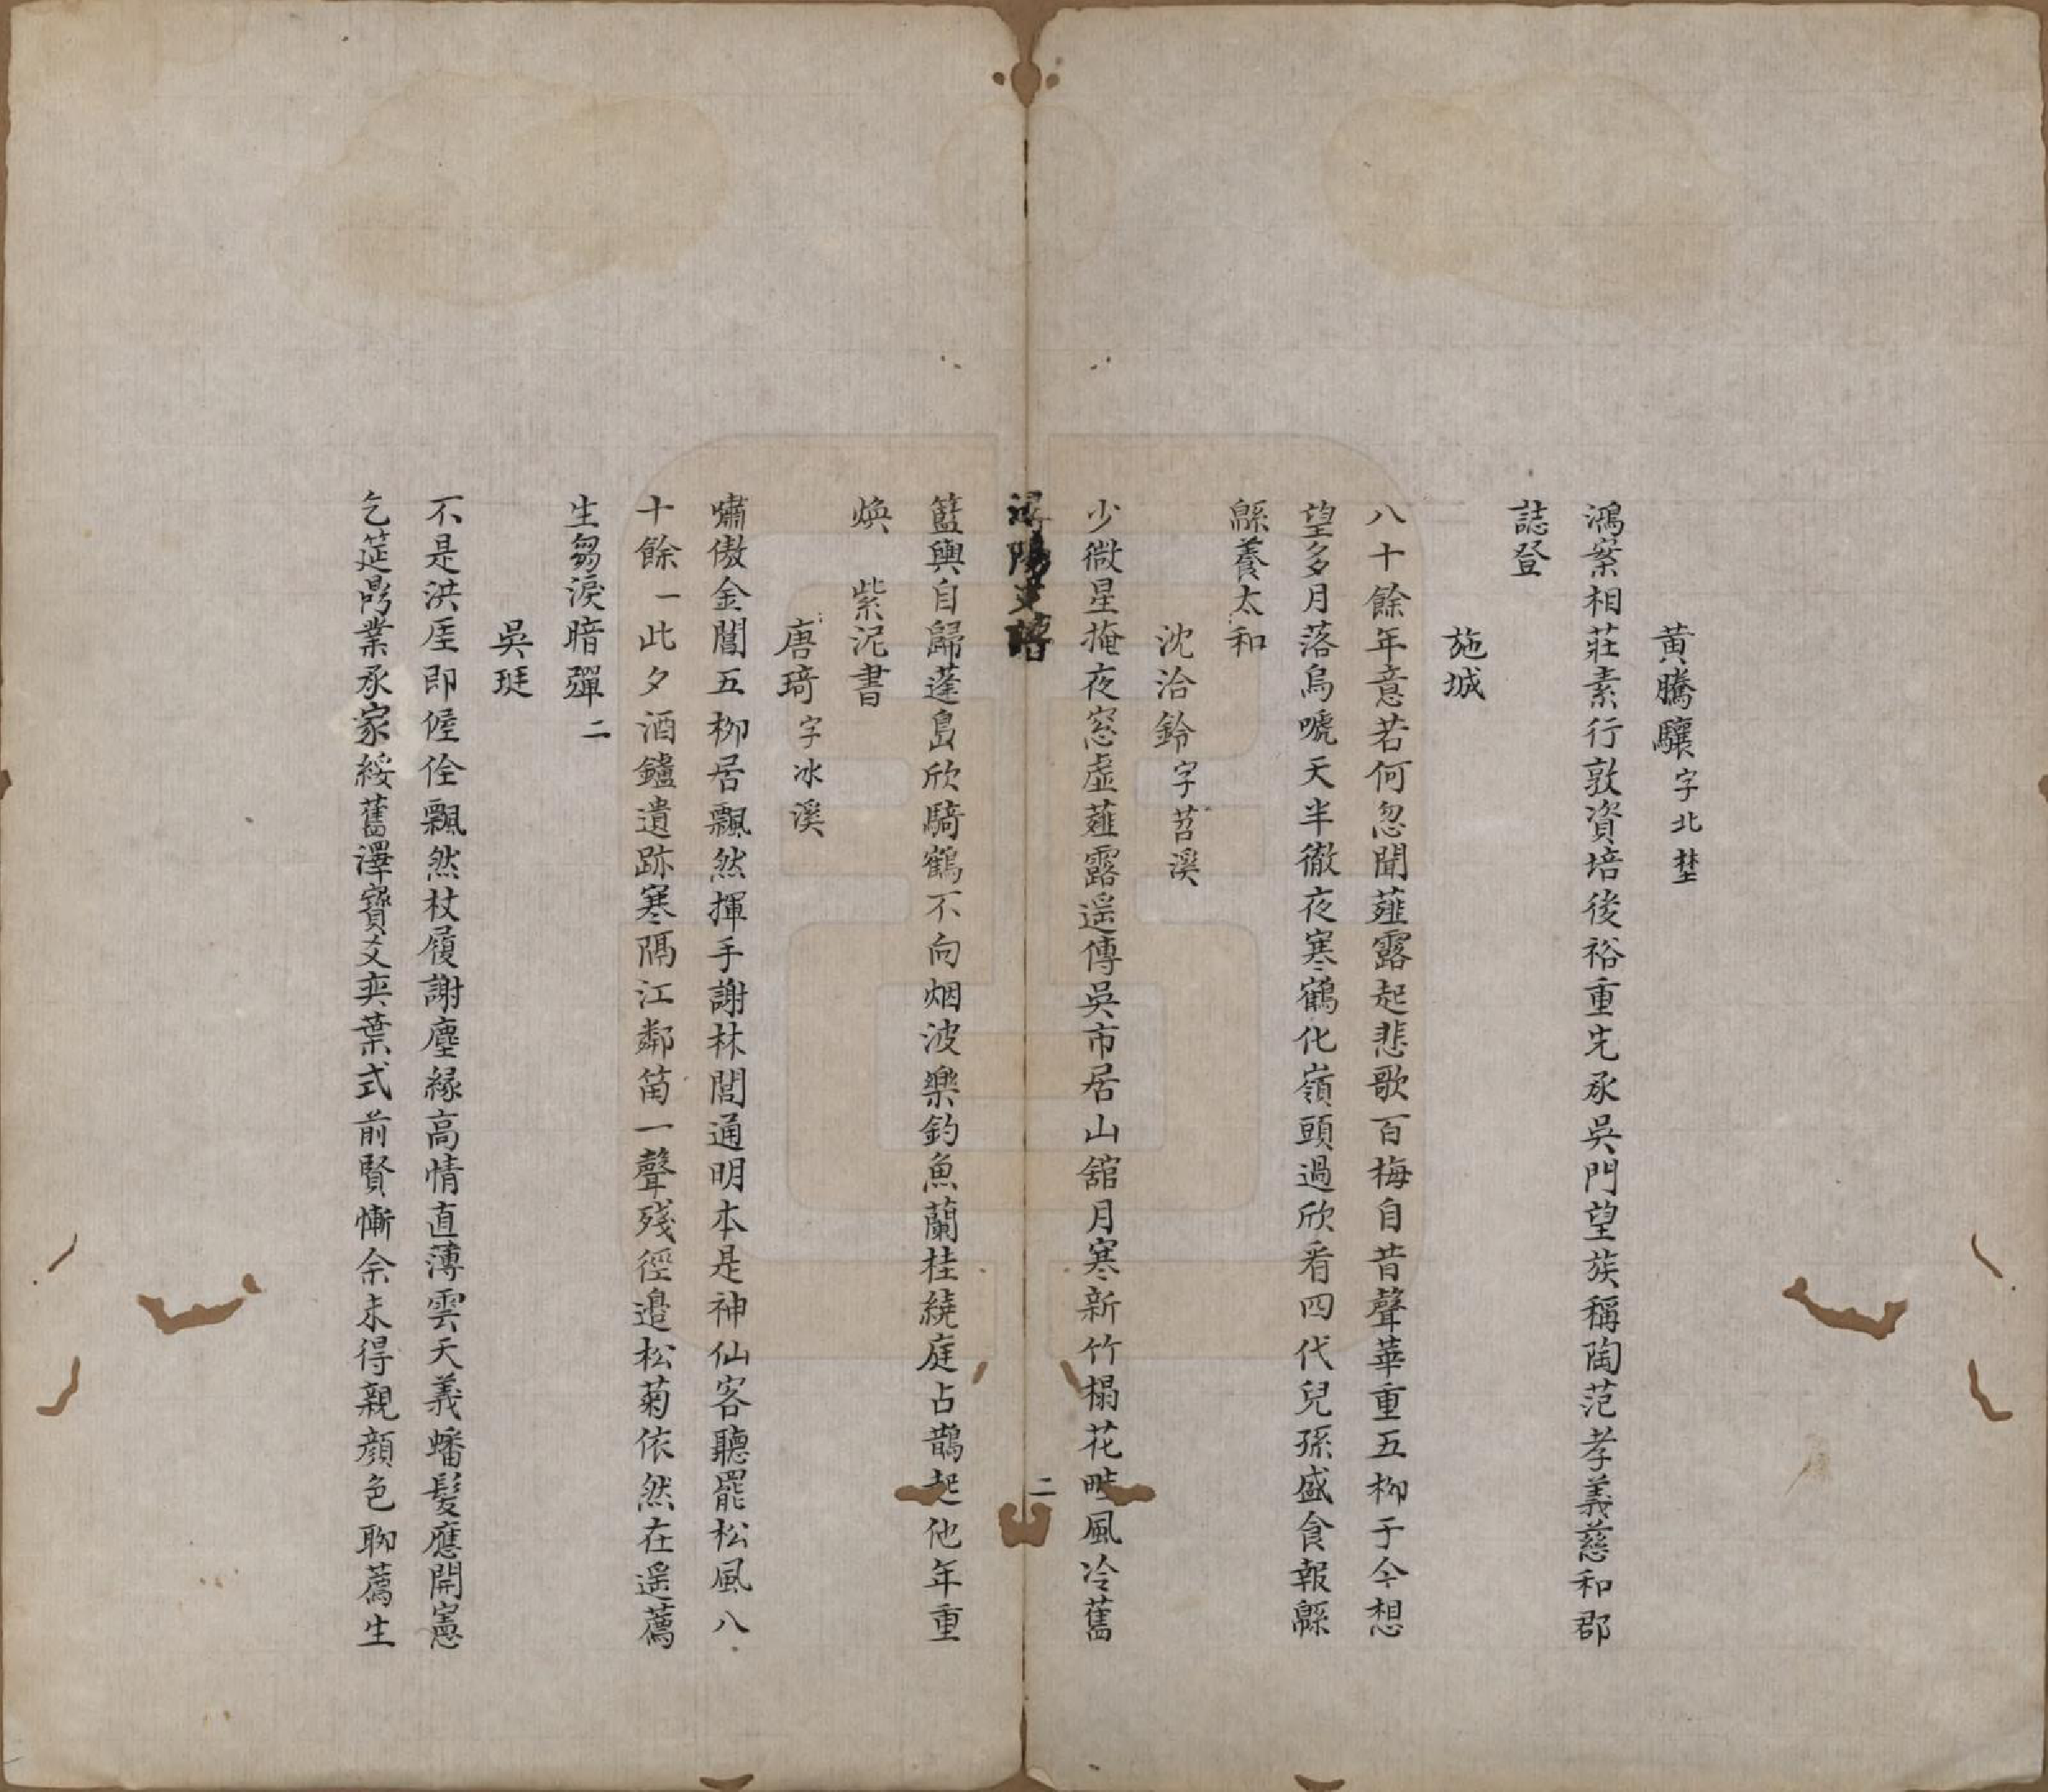 黄騰驤字北埜
鴻案相莊素行敦資培後裕重先承吳門望族稱陶范孝義慈和郡
誌登
施城
八十餘年意若何忽聞薤露起悲歌百梅自昔聲華重五柳于今想
望多月落烏嗁天半徹夜寒鶴化嶺頭過欣看四代兒孫盛食報緜
緜養太和
沈洽鈴字苕溪
少微星掩夜窓虛薤露遥傳吳市居山舘月寒新竹榻花畦風冷舊
潯陽
二
籃輿自歸蓬島欣騎鶴不向烟波樂釣魚蘭桂繞庭占鵲起他年重
煥紫泥書
唐琦字冰溪
嘯傲金閶五柳居飄然揮手謝林閭通明本是神仙客聽罷松風八
十餘一此夕酒鑪遺跡寒隔江鄰笛一聲殘徑邉松菊依然在遥薦
生芻淚暗彈二
吳珽
不是洪厓即偓佺飄然杖履謝塵緣高情直薄雲天義蟠髮應開寯
乞筵鼎業承家綏舊澤寶文奕葉式前賢慚余未得親顔色聊薦生